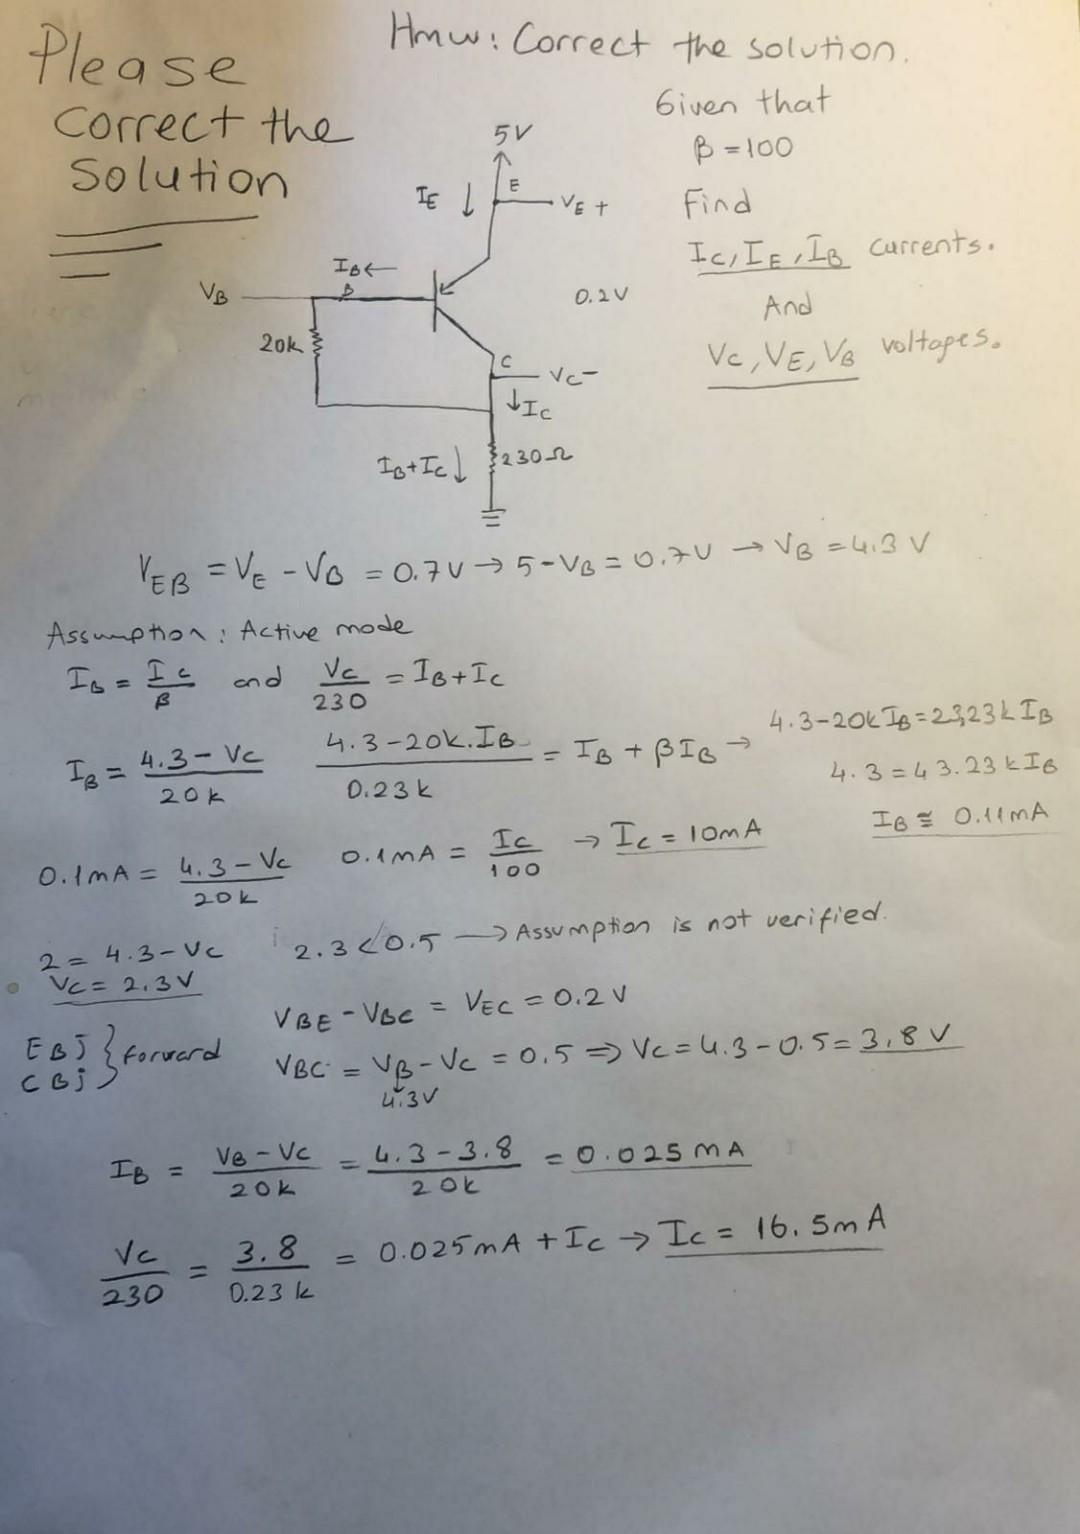 Please
Correct the
Solution
Hmw: Correct the solution.
Given that
β = 100
Find
Ic, IE, IB currents.
And
Vc, VE, VB voltages.
5V
IE ↓
E
VE +
IB ←
B
VB
0.2V
20k
C
Vc -
↓ Ic
IB + Ic ↓
230Ω
VEB = VE - VB = 0.7V → 5 - VB = 0.7V → VB = 4.3 V
Assumption: Active mode
IB = Ic/β and Vc/230 = IB + Ic
IB = (4.3 - Vc)/20k (4.3 - 20k.IB)/0.23k = IB + βIB → 4.3 - 20k IB = 23,23k IB
4.3 = 43.23k IB
IB ≅ 0.11mA
0.1mA = (4.3 - Vc)/20k 0.1mA = Ic/100 → Ic = 10mA
2 = 4.3 - Vc 2.3 < 0.5 → Assumption is not verified.
Vc = 2.3V
VBE - VBC = VEC = 0.2V
EBj } forward
CBj
VBC = VB - Vc = 0.5 ⇒ Vc = 4.3 - 0.5 = 3,8 V
4.3V
IB = (VB - Vc)/20k = (4.3 - 3.8)/20k = 0.025 mA
Vc/230 = 3.8/0.23k = 0.025mA + Ic → Ic = 16.5mA